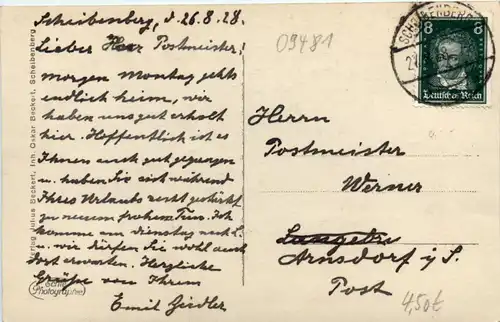 Scheibenberg, d. 26.8.28.
Lieber Herr Postmeister!
Morgen Montag gehts
endlich heim, wir
haben uns gut erholt
hier. Hoffentlich ist es
Ihnen auch gut gegangen
u. haben Sie sich während
Ihres Urlaubs recht gestärkt
zu neuem frohem Tun. Ich
komme am Dienstag nach L.
u. wir dürfen Sie wohl auch
dort erwarten. Herzliche
Grüße von Ihrem
Emil Ziedler
Verlag Julius Beckert, Inh. Oskar Beckert, Scheibenberg
Echte
Photographie
09481
SCHEIBENBERG
8 8
Deutsches Reich
Herrn
Postmeister
Werner
Arnsdorf i/S.
Post
4,50€